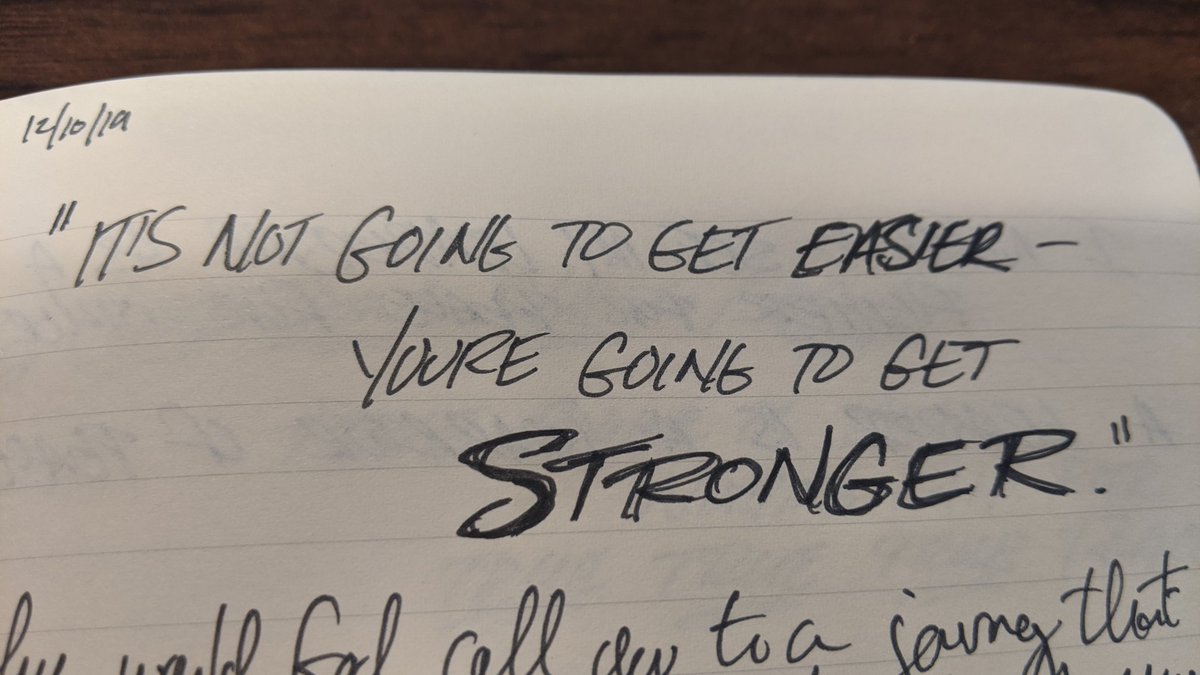 12/10/19
"IT'S NOT GOING TO GET EASIER –
YOU'RE GOING TO GET
STRONGER."
would God call you to a journey that